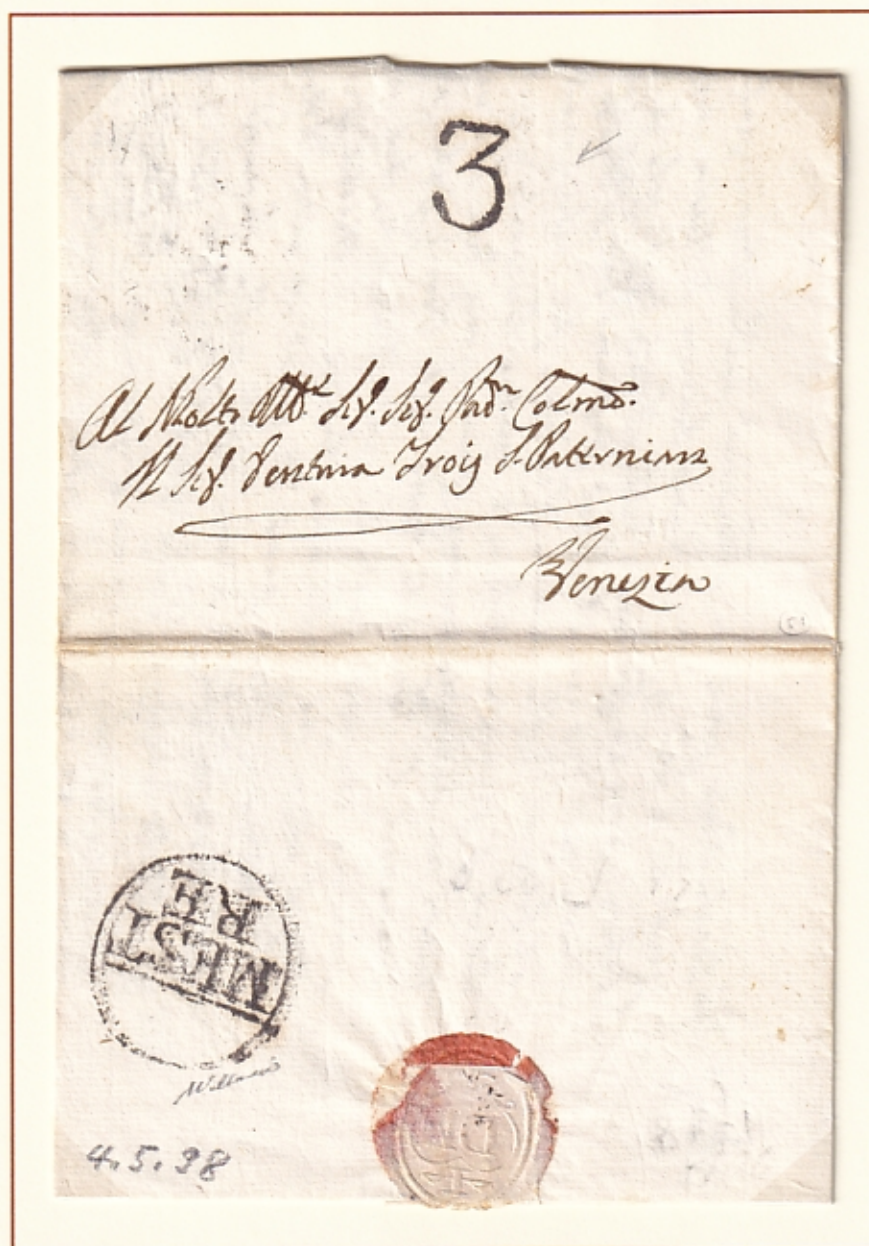 3
Al Molto Ill.e Sig. Sig. Pad.n Colmo.
Il Sig. Ventura Trois S. Paternian
Venezia
MEST
RE
4.5.98